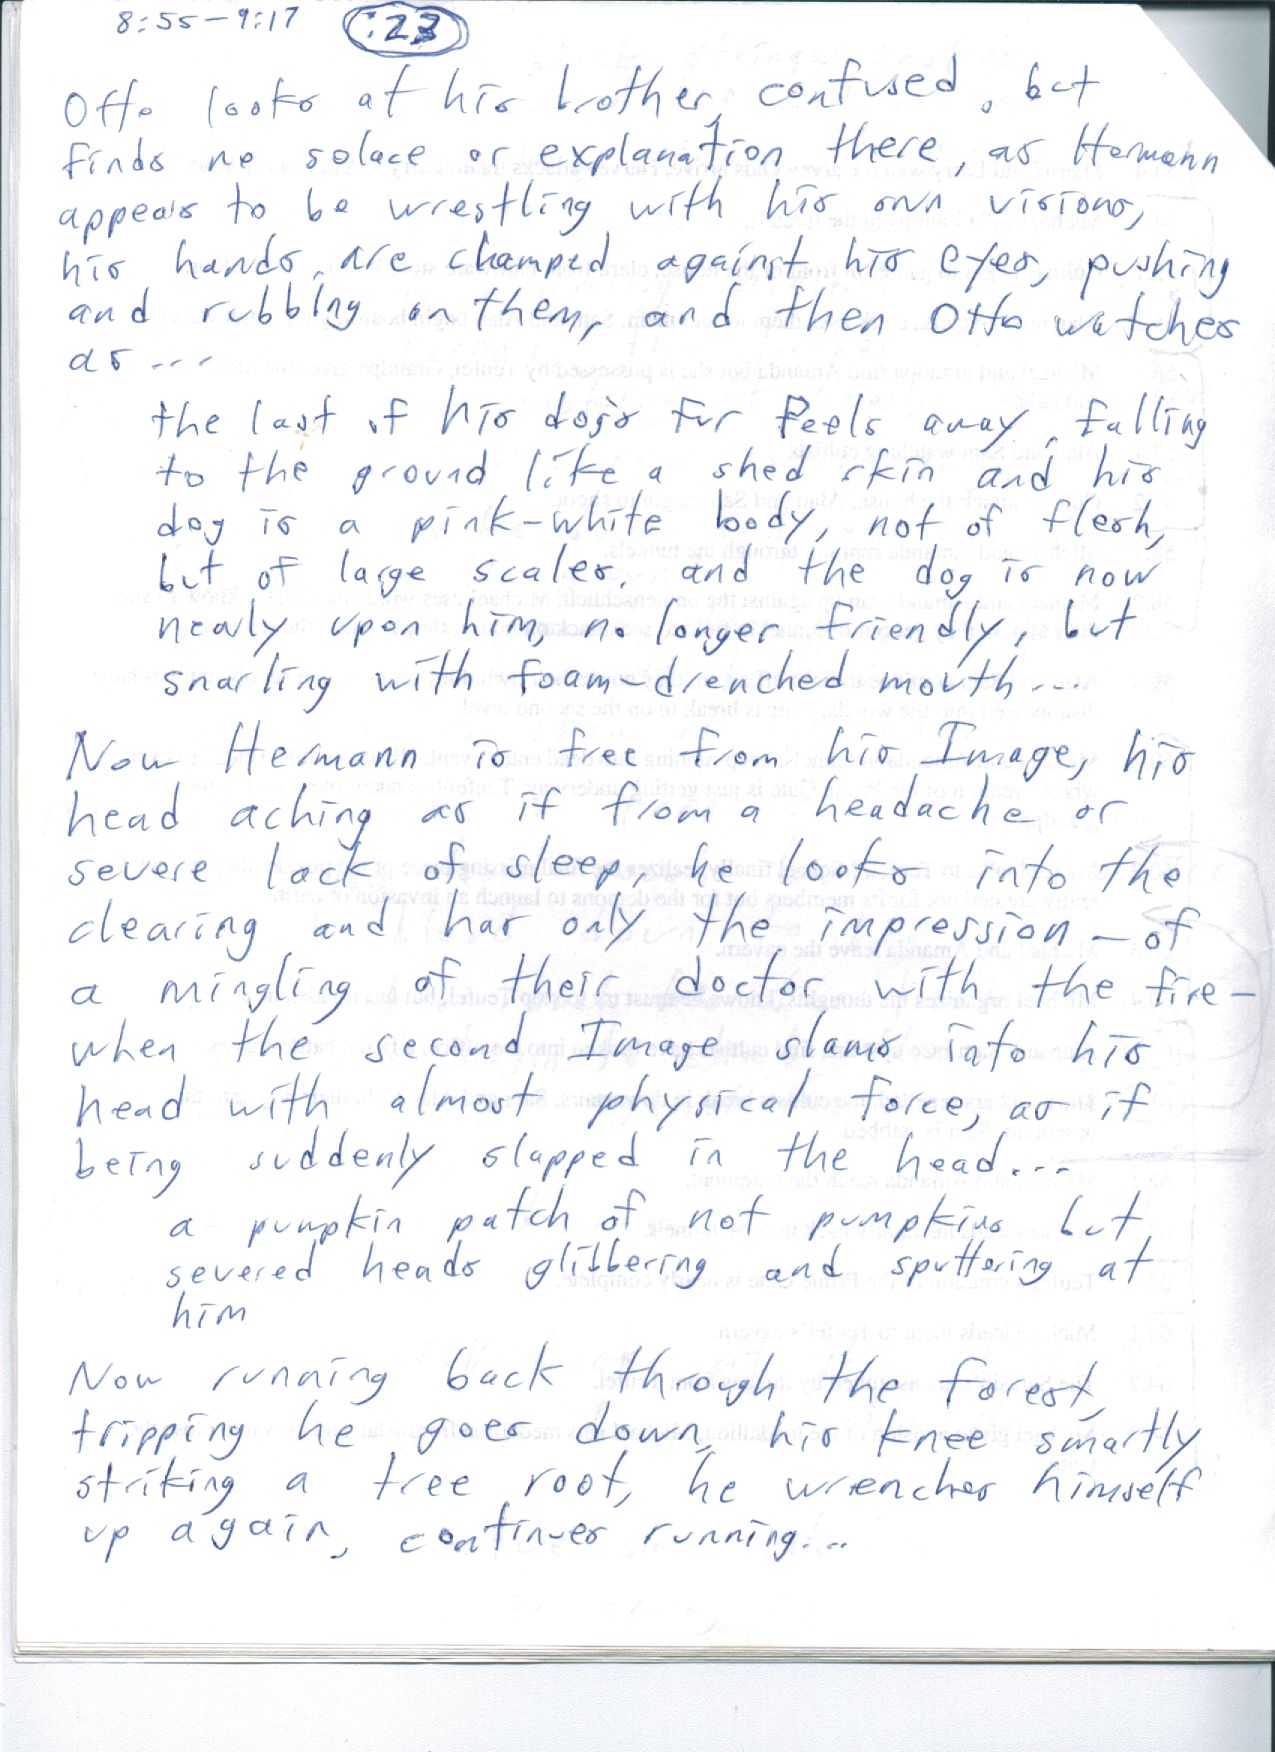 8:55-9:17 :23
Otto looks at his brother, confused, but
finds no solace or explanation there, as Hermann
appears to be wrestling with his own visions,
his hands are champed against his eyes, pushing
and rubbing on them, and then Otto watches
as ...
the last of his dog's fur peels away, falling
to the ground like a shed skin and his
dog is a pink-white body, not of flesh,
but of large scales, and the dog is now
nearly upon him, no longer friendly, but
snarling with foam-drenched mouth...
Now Hermann is free from his Image, his
head aching as if from a headache or
severe lack of sleep, he looks into the
clearing and has only the impression - of
a mingling of their doctor with the fire -
when the second Image slams into his
head with almost physical force, as if
being suddenly slapped in the head...
a pumpkin patch of not pumpkins but
severed heads glibbering and sputtering at
him
Now running back through the forest,
tripping he goes down, his knee smartly
striking a tree root, he wrenches himself
up again, continues running...